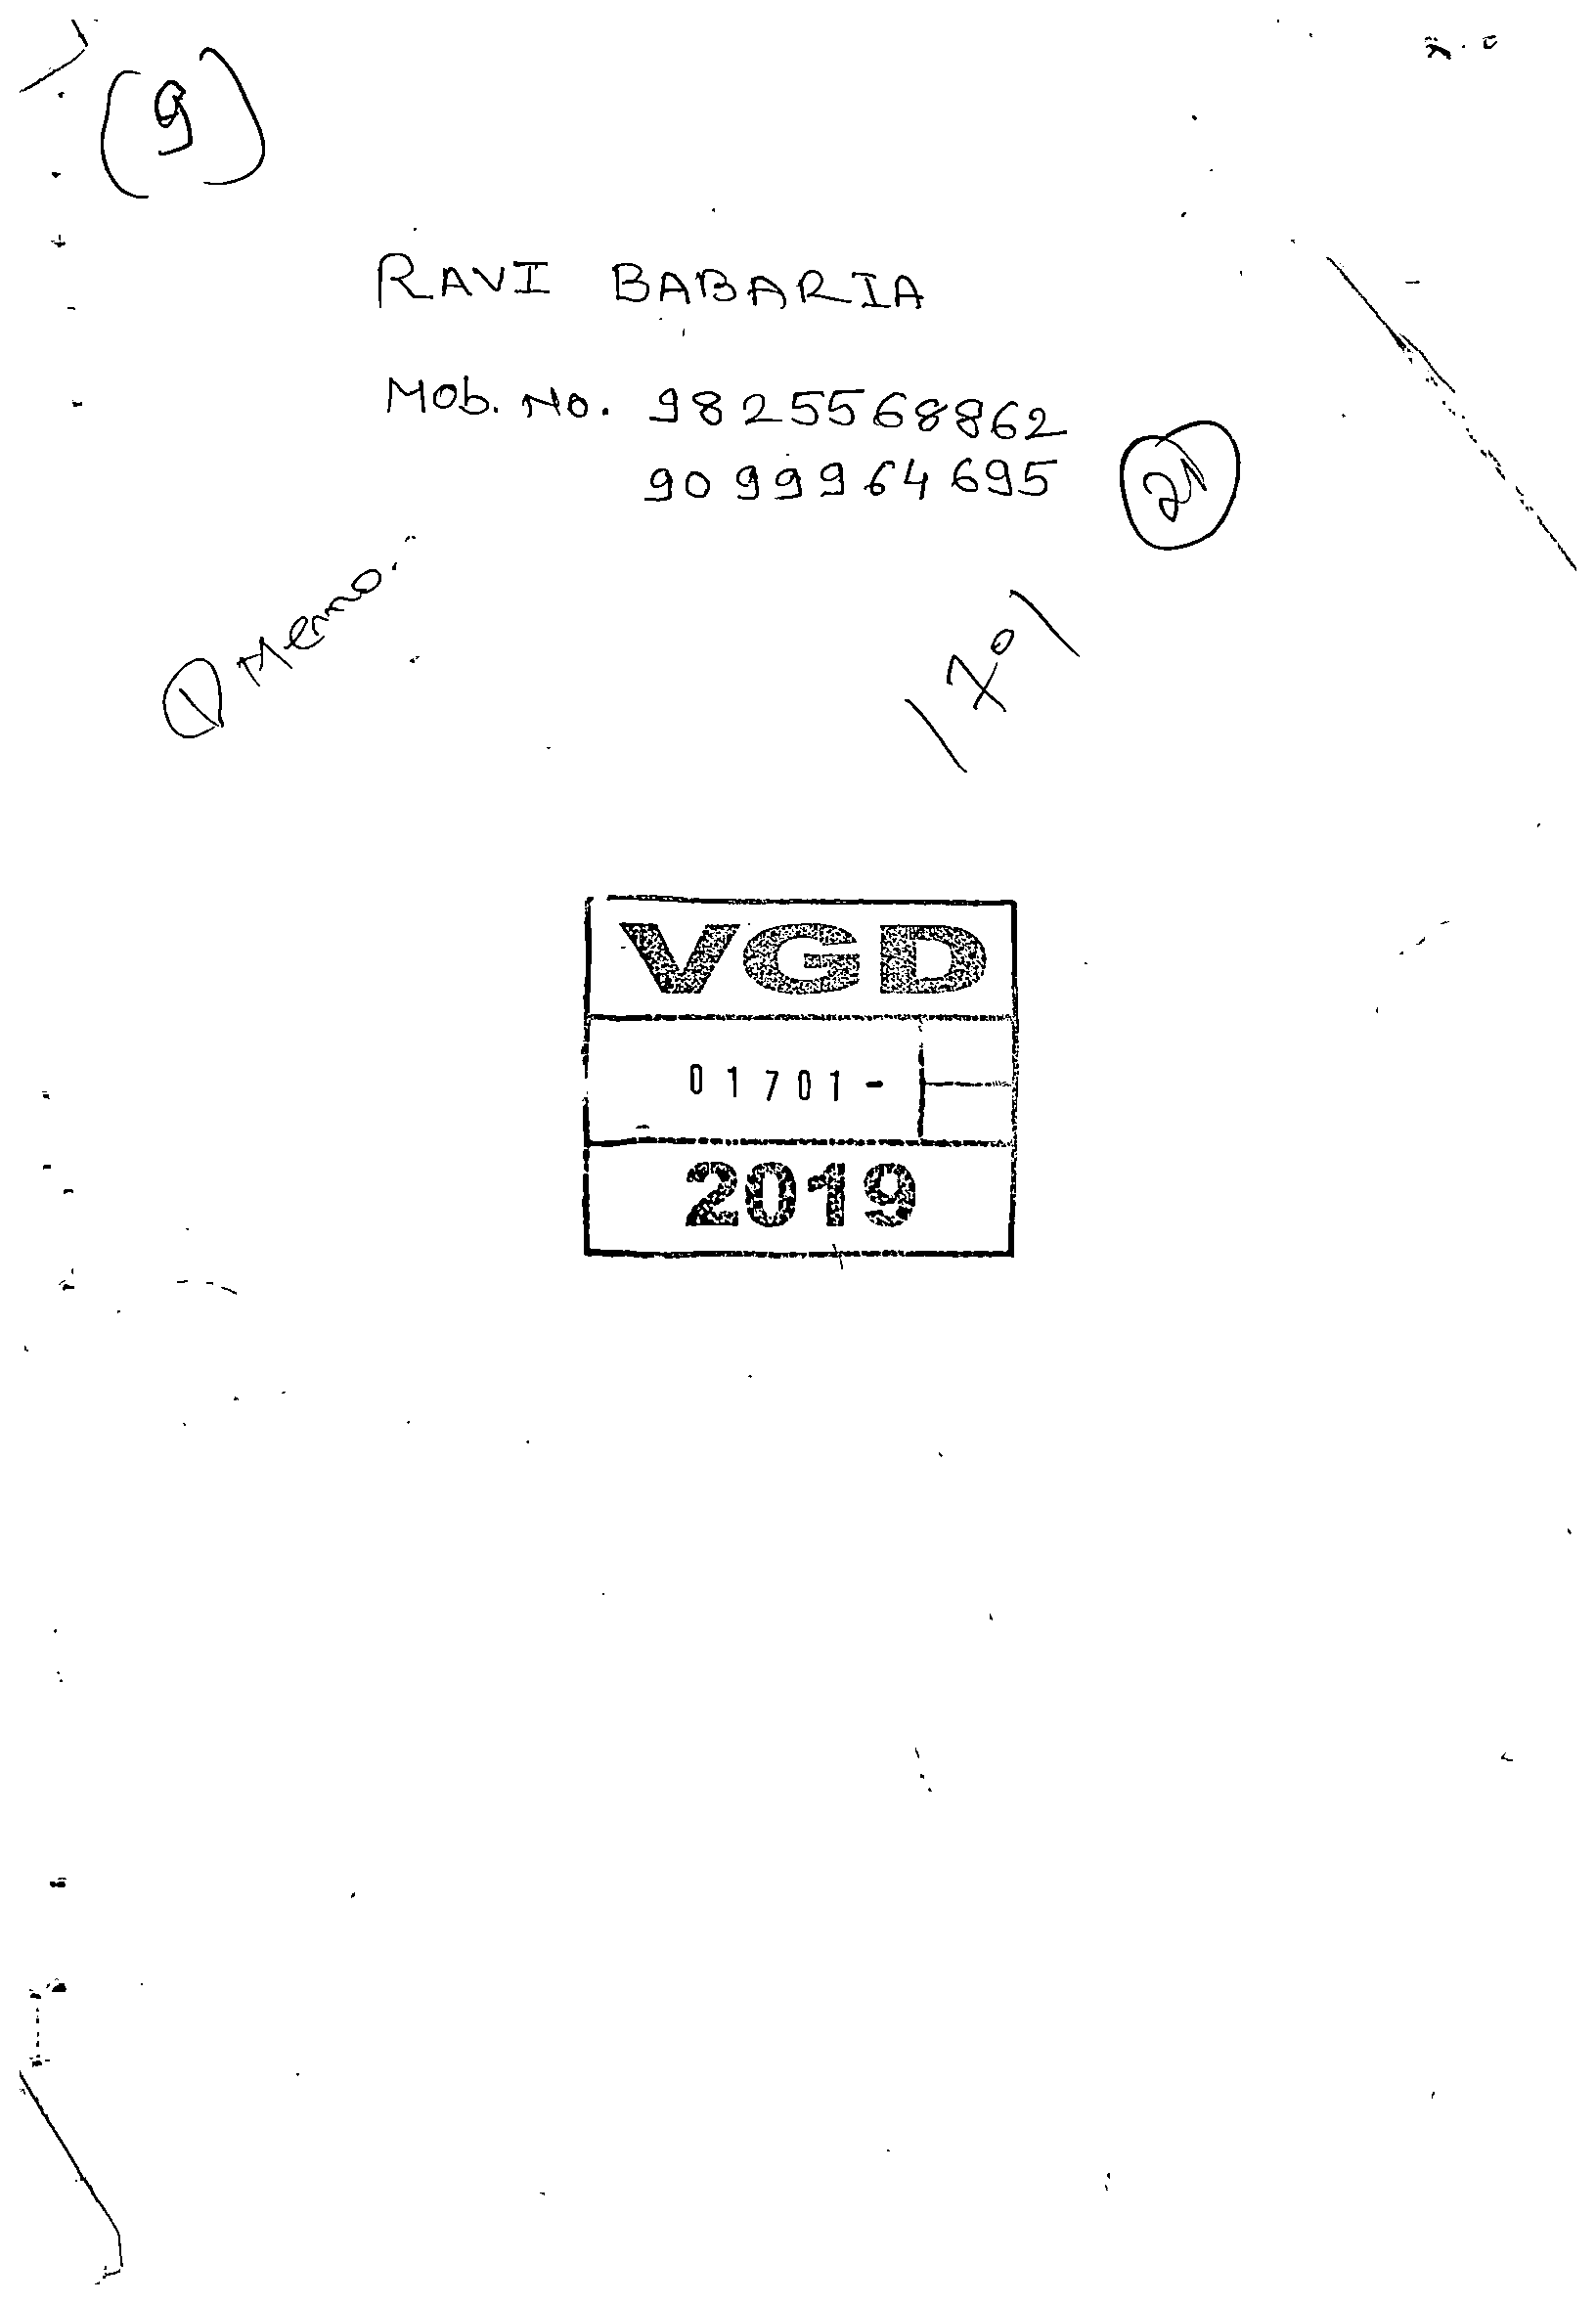 (9)
RAVI BABARIA
Mob. No. 9825568862
9099964695
21
① Memo.
1701
VGD
01701-
2019